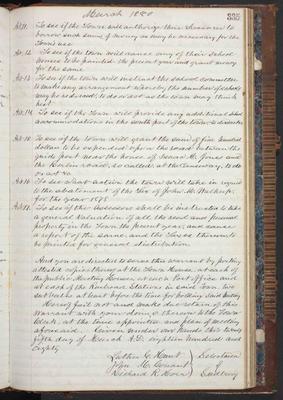 March 1880
Art. 11. To see if the Town will authorize their Treasurer to
borrow such sums of money as may be necessary for the
Town's use
Art. 12. To see if the town will cause any of their School
houses to be painted the present year and grant money
for the same
Art. 13. To see if the town will instruct the school committee
to make any arrangement whereby the number of schools
may be reduced, to do or act as the town may think
best
Art. 14. To see if the Town will provide any additional school
accommodations in the south part of the town
Art. 15. To see if the Town will grant the sum of five hundred
dollars to be expended upon the road between the
guide post near the house of Jones and
the road, so called, at the causeway, to do
or act &c.
Art. 16. To see what action the Town will take in regard
to the abatement of the tax of John H.
for the year 1878
Art. 17. To see if the Assessors shall be instructed to take
a general valuation of all the real and personal
property in the Town the present year, and cause
a report of the same, and the taxes thereon to
be printed for general distribution
And you are directed to serve this warrant by posting
attested copies thereof at the Town House, at each of
the public Meeting Houses, at each Post Office, and
at each of the Railroad Stations in said Town, two
sabbaths at least before the time for holding said meeting
Hereof fail not and make due return of this
Warrant with your doings thereon to the Town
Clerk, at the time appointed and place of meeting
aforesaid. Given under our hands this twenty
fifth day of March A.D. eighteen hundred and
eighty
Luther G. Hunt } Selectmen
John H. } of
Richard R. Horr } Sudbury